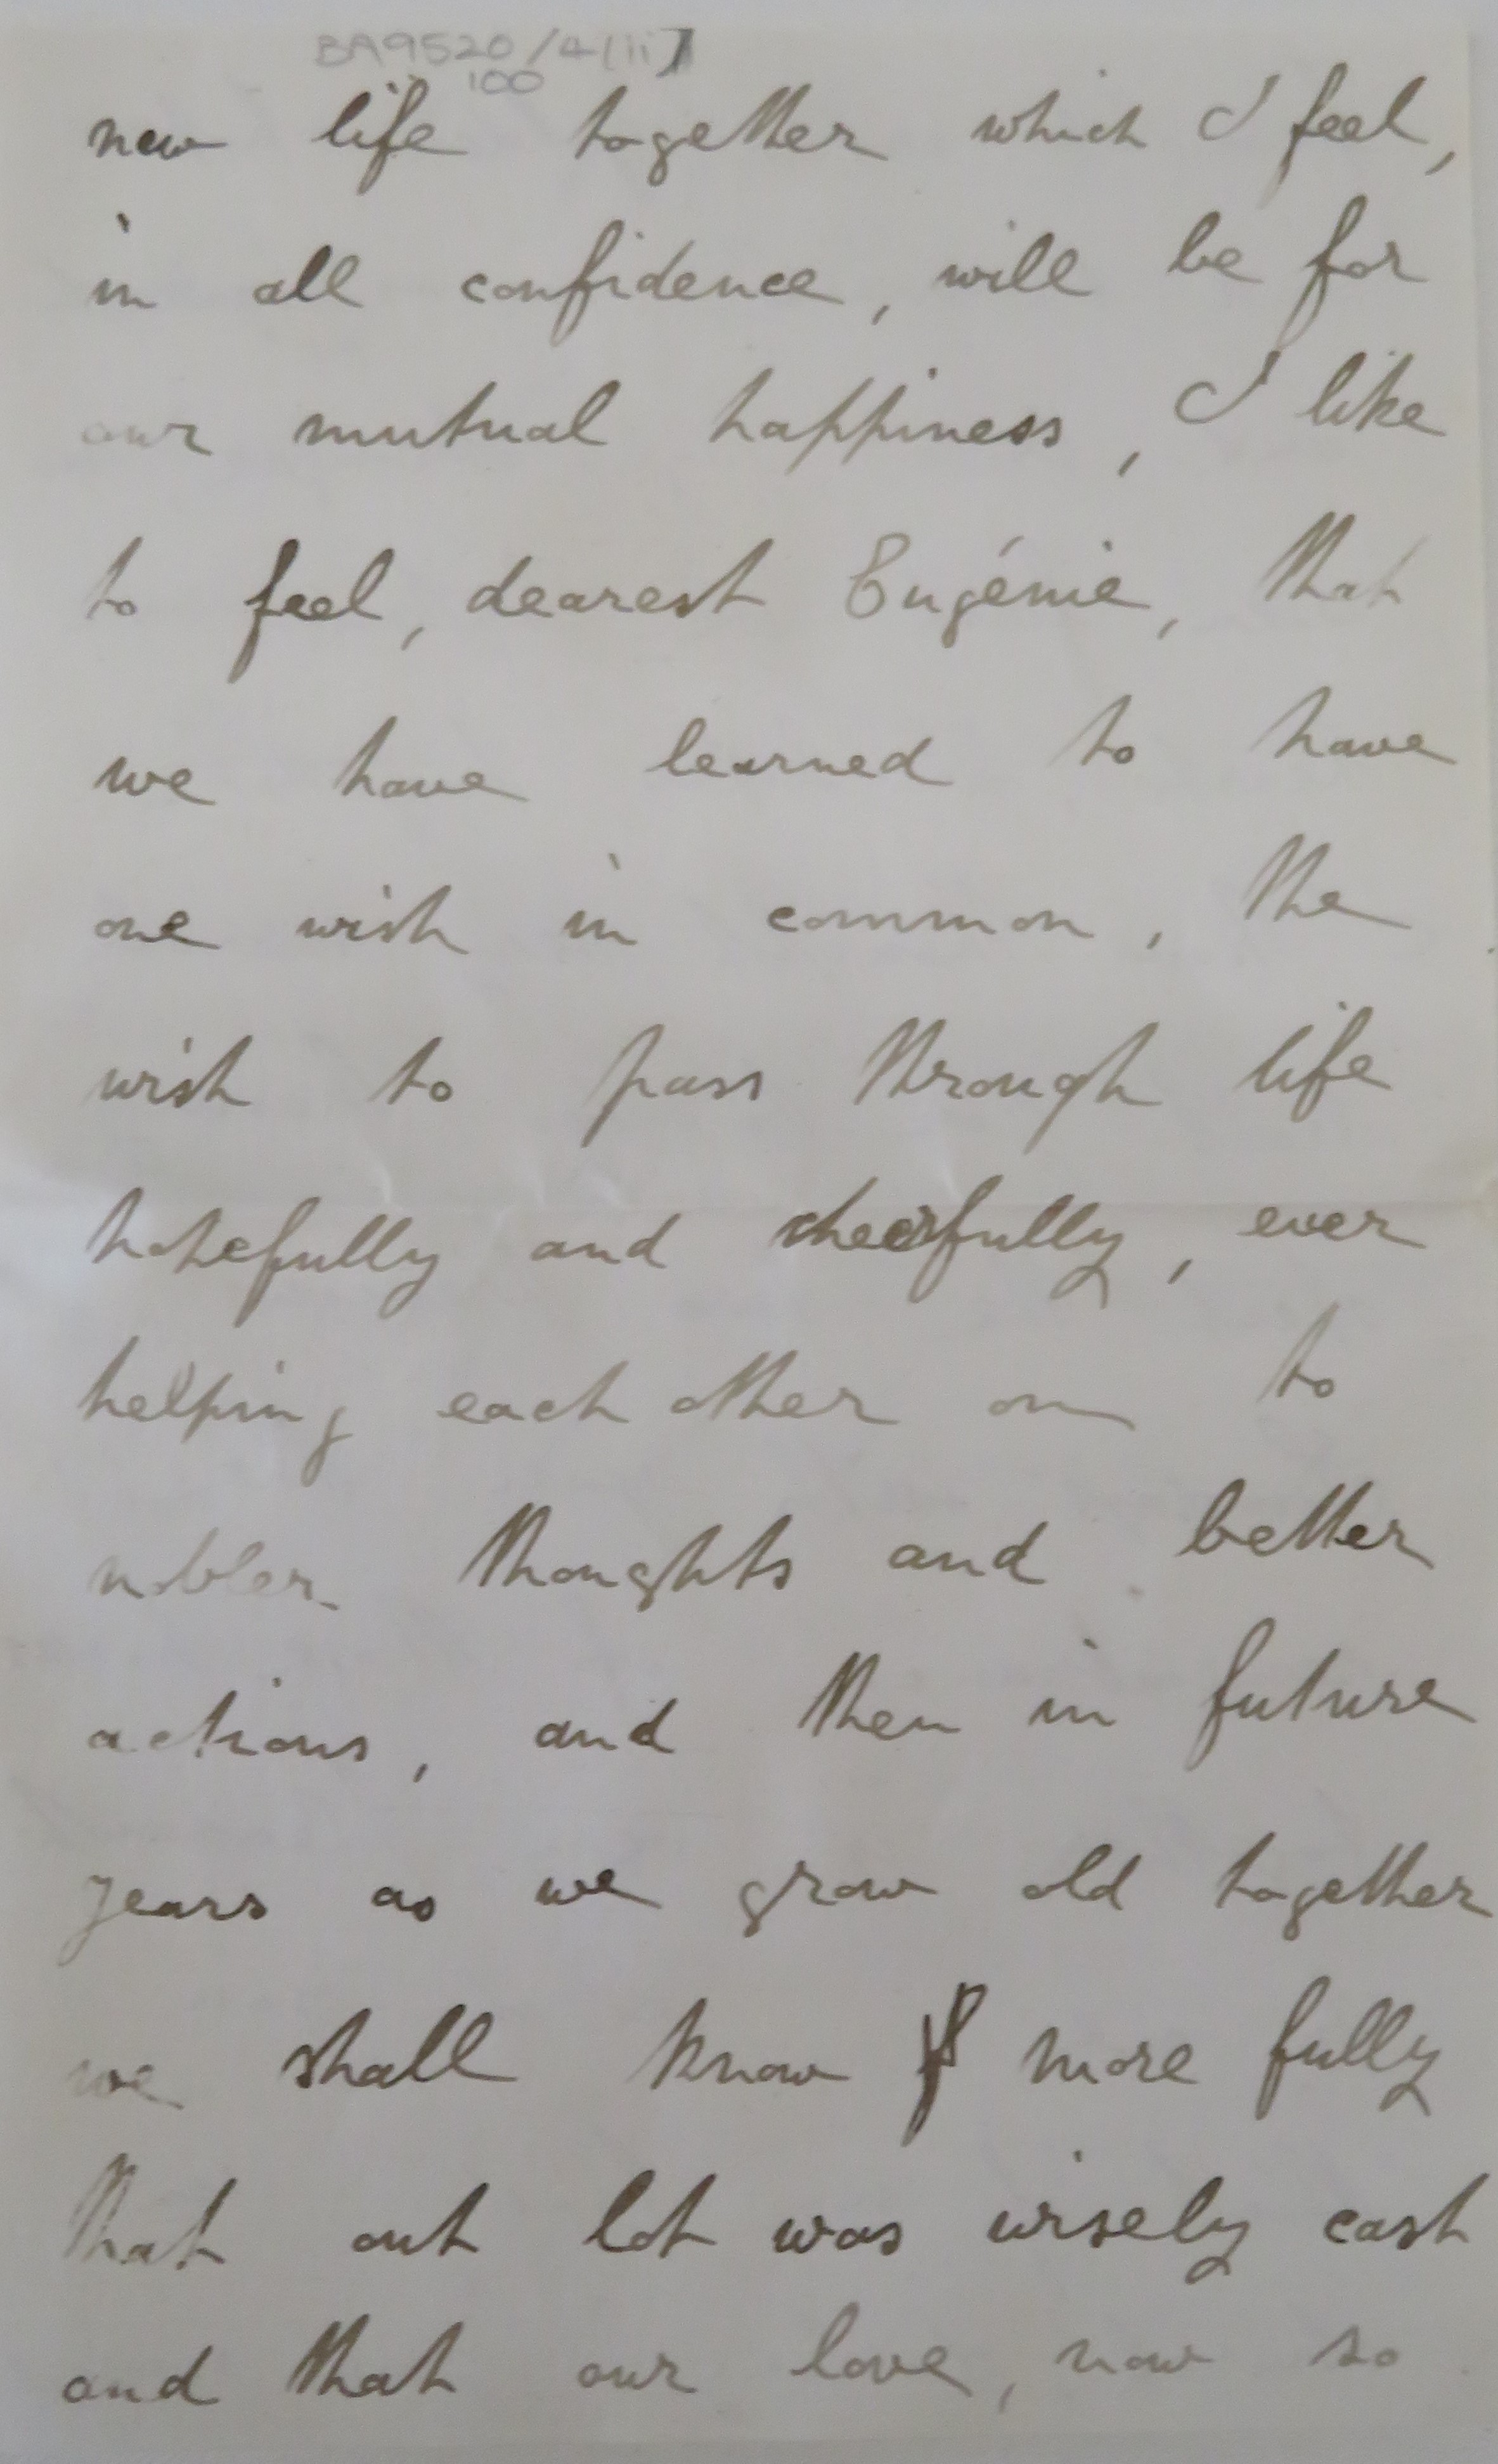 BA9520/4(ii)
100
new life together which I feel,
in all confidence, will be for
our mutual happiness, I like
to feel, dearest Eugénie, that
we have learned to have
one wish in common, the
wish to pass through life
hopefully and cheerfully, ever
helping each other on to
nobler thoughts and better
actions, and then in future
years as we grow old together
we shall know more fully
that out lot was wisely cast
and that our love, now so